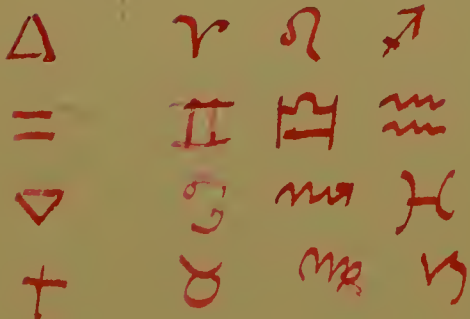 △ ♈ ♌ ♐
= ♊ ♎ ♒
▽ ♋ ♏ ♓
† ♉ ♍ ♑